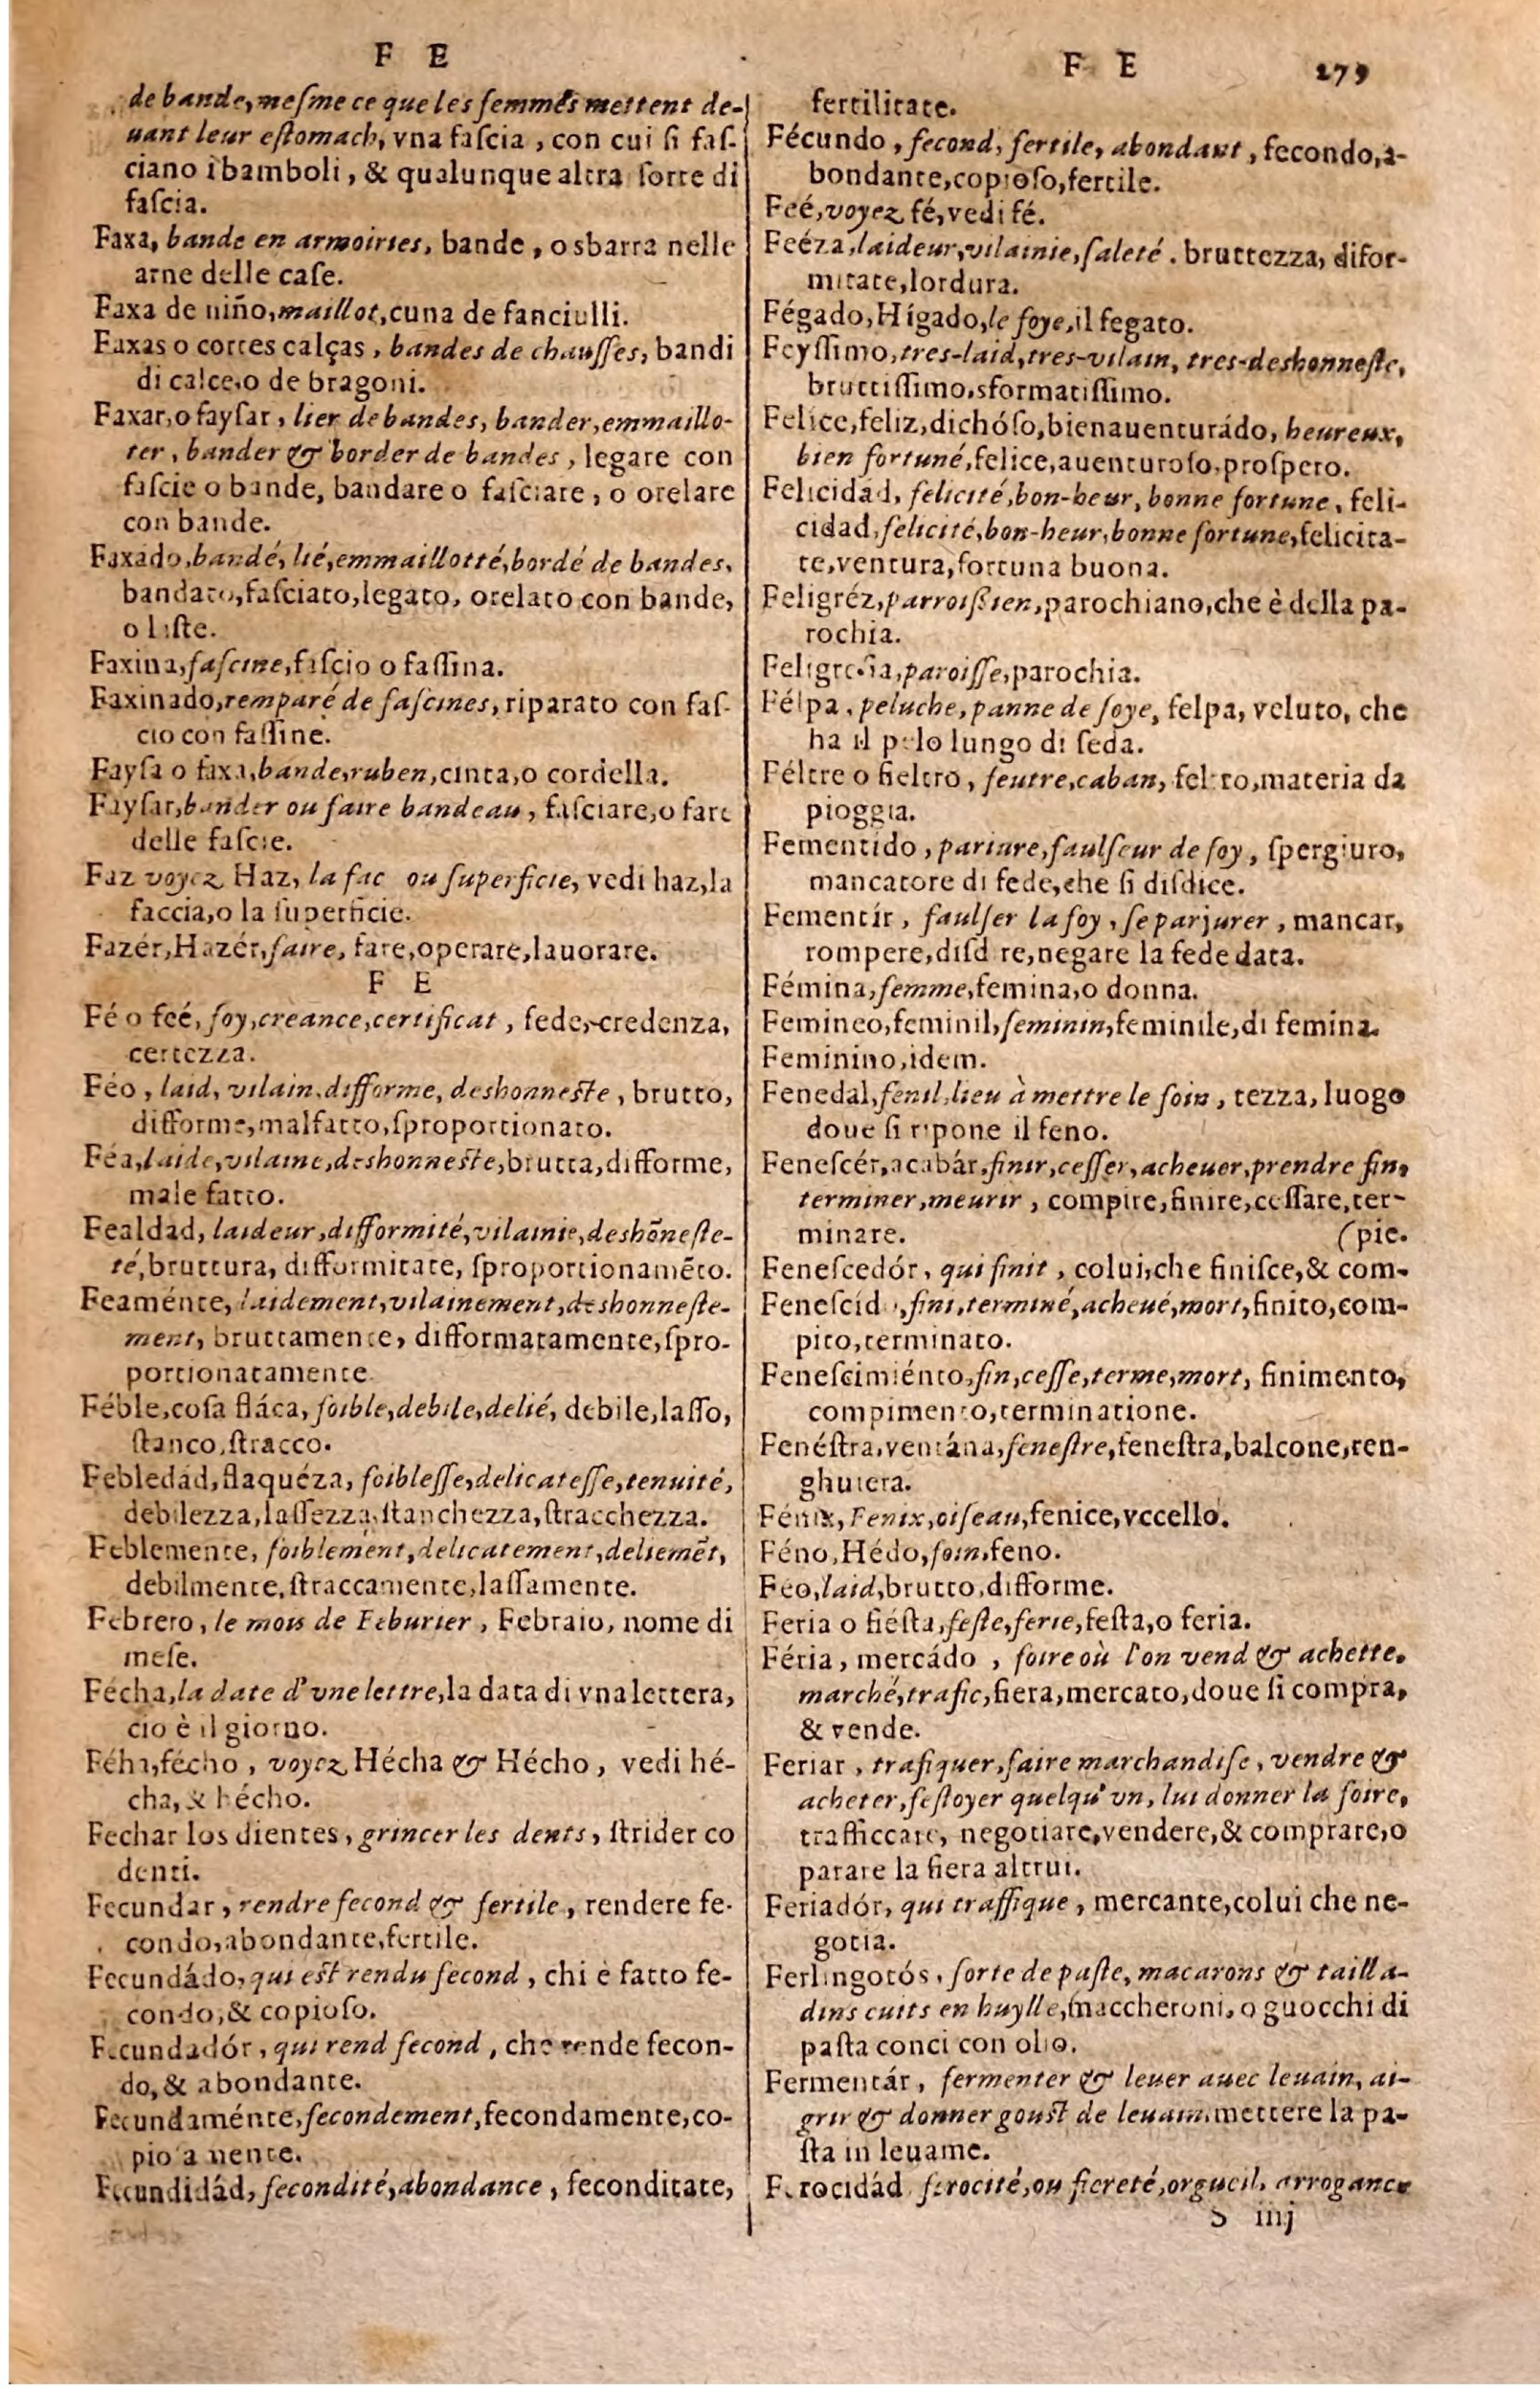 F E
de bande, meſme ce que les femmes mettent de-
uant leur eſtomach, vna faſcia, con cui ſi faſ-
ciano i bamboli, & qualunque altra ſorte di
faſcia.
Faxa, bande en armoiries, bande, o sbarra nelle
arne delle caſe.
Faxa de niño, maillot, cuna de fanciulli.
Faxas o cortes calças, bandes de chauſſes, bandi
di calce, o de bragoni.
Faxar, o fayſar, lier de bandes, bander, emmaillo-
ter, bander & border de bandes, legare con
faſcie o bande, bandare o faſciare, o orelare
con bande.
Faxado, bandé, lié, emmaillotté, bordé de bandes,
bandato, faſciato, legato, orelato con bande,
o liſte.
Faxina, faſcine, faſcio o faſſina.
Faxinado, remparé de faſcines, riparato con faſ-
cio con faſſine.
Fayſa o faxa, bande, ruben, cinta, o cordella.
Fayſar, bander ou faire bandeau, faſciare, o fare
delle faſcie.
Faz voyez Haz, la fac ou ſuperficie, vedi haz, la
faccia, o la ſuperficie.
Fazér, Hazér, faire, fare, operare, lauorare.
F E
Fé o feé, foy, creance, certificat, fede, credenza,
certezza.
Féo, laid, vilain, difforme, deshonneſte, brutto,
difforme, malfatto, ſproportionato.
Féa, laide, vilaine, deshonneſte, brutta, difforme,
male fatto.
Fealdad, laideur, difformité, vilainie, deshõneſte-
té, bruttura, difformitate, ſproportionamẽto.
Feaménte, laidement, vilainement, deshonneſte-
ment, bruttamente, difformatamente, ſpro-
portionatamente
Féble, coſa fláca, foible, debile, delié, debile, laſſo,
ſtanco, ſtracco.
Febledád, flaquéza, foibleſſe, delicateſſe, tenuité,
debilezza, laſſezza, ſtanchezza, ſtracchezza.
Feblemente, foiblement, delicatement, deliemẽt,
debilmente, ſtraccamente, laſſamente.
Febrero, le mois de Feburier, Febraio, nome di
meſe.
Fécha, la date d'vne lettre, la data di vna lettera,
cio è il giorno.
Féha, fécho, voyez Hécha & Hécho, vedi hé-
cha, & hécho.
Fechar los dientes, grincer les dents, ſtrider co
denti.
Fecundar, rendre fecond & fertile, rendere fe-
condo, abondante, fertile.
Fecundádo, qui eſt rendu fecond, chi è fatto fe-
condo, & copioſo.
Fecundadór, qui rend fecond, che rende fecon-
do, & abondante.
Fecundaménte, fecondement, fecondamente, co-
pio a mente.
Fecundidád, fecondité, abondance, feconditate,
F E 279
fertilitate.
Fécundo, fecond, fertile, abondant, fecondo, a-
bondante, copioſo, fertile.
Feé, voyez fé, vedi fé.
Feéza, laideur, vilainie, ſaleté. bruttezza, difor-
mitate, lordura.
Fégado, Hígado, le foye, il fegato.
Feyſſimo, tres-laid, tres-vilain, tres-deshonneſte,
bruttiſſimo, sformatiſſimo.
Felíce, feliz, dichóſo, bienauenturádo, heureux,
bien fortuné, felice, auenturoſo, proſpero.
Felicidád, felicité, bon-heur, bonne fortune, feli-
cidad, felicité, bon-heur, bonne fortune, felicita-
te, ventura, fortuna buona.
Feligréz, parroißien, parochiano, che è della pa-
rochia.
Feligreſia, paroiſſe, parochia.
Félpa, peluche, panne de ſoye, felpa, veluto, che
ha il pelo lungo di ſeda.
Féltre o fieltro, feutre, caban, feltro, materia da
pioggia.
Fementído, pariure, faulſeur de foy, ſpergiuro,
mancatore di fede, che ſi diſdice.
Fementír, faulſer la foy, ſe parjurer, mancar,
rompere, diſd re, negare la fede data.
Fémina, femme, femina, o donna.
Femineo, feminil, feminin, feminile, di femina.
Feminino, idem.
Fenedal, fenil, lieu à mettre le foin, tezza, luogo
doue ſi ripone il feno.
Feneſcér, acabár, finir, ceſſer, acheuer, prendre fin,
terminer, meurir, compire, finire, ceſſare, ter-
minare. (pie.
Feneſcedór, qui finit, colui, che finiſce, & com-
Feneſcído, fini, terminé, acheué, mort, finito, com-
pito, terminato.
Feneſcimiénto, fin, ceſſe, terme, mort, finimento,
compimento, terminatione.
Fenéſtra, ventána, feneſtre, feneſtra, balcone, ren-
ghuiera.
Fénix, Fenix, oiſeau, fenice, vccello.
Féno, Hédo, foin, feno.
Feo, laid, brutto, difforme.
Feria o fiéſta, feſte, ferie, feſta, o feria.
Féria, mercádo, foire où l'on vend & achette,
marché, trafic, fiera, mercato, doue ſi compra,
& vende.
Feriar, trafiquer, faire marchandiſe, vendre &
acheter, feſtoyer quelqu'vn, lui donner la foire,
trafficcare, negotiare, vendere, & comprare, o
parare la fiera altrui.
Feriadór, qui traffique, mercante, colui che ne-
gotia.
Ferlingotós, ſorte de paſte, macarons & tailla-
dins cuits en huylle, maccheroni, o guocchi di
paſta conci con olio.
Fermentár, fermenter & leuer auec leuain, ai-
grir & donner gouſt de leuain, mettere la pa-
ſta in leuame.
Ferocidád ferocité, ou fiereté, orgueil, arrogance
S iiij